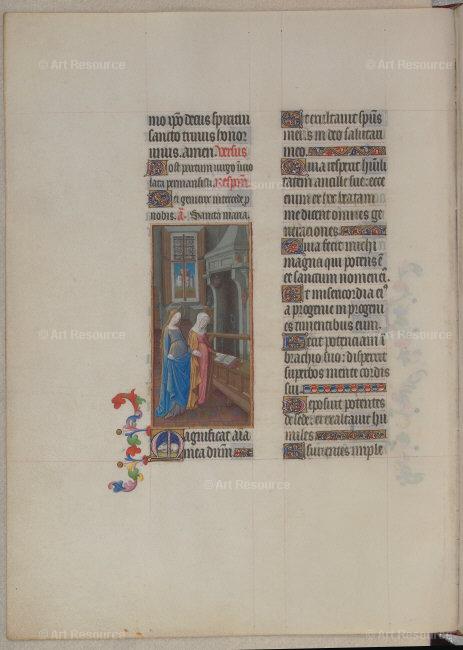 mo xpo decus spiritui
sancto trinus honor
unus. amen. Versus
Post partum virgo invio
lata permansisti. Respons
Dei genitrix intercede p
nobis. a. Sancta maria.
Magnificat aia
mea dnm
Et exultavit spūs
meus in deo salutari
meo.
Quia respexit humili
tatem ancille sue: ecce
enim ex hoc beatam
me dicent omnes ge
nerationes
Quia fecit michi
magna qui potens ē
et sanctum nomen eꝰ.
Et misericordia eiꝰ
a progenie in progeni
es timentibus eum.
Fecit potenciam ī
brachio suo: dispersit
superbos mente cordis
sui.
Deposuit potentes
de sede: et exaltavit hu
miles
Esurientes imple
© Art Resource
© Art Resource
© Art Resource
© Art Resource
© Art Resource
© Art Resource
© Art Resource